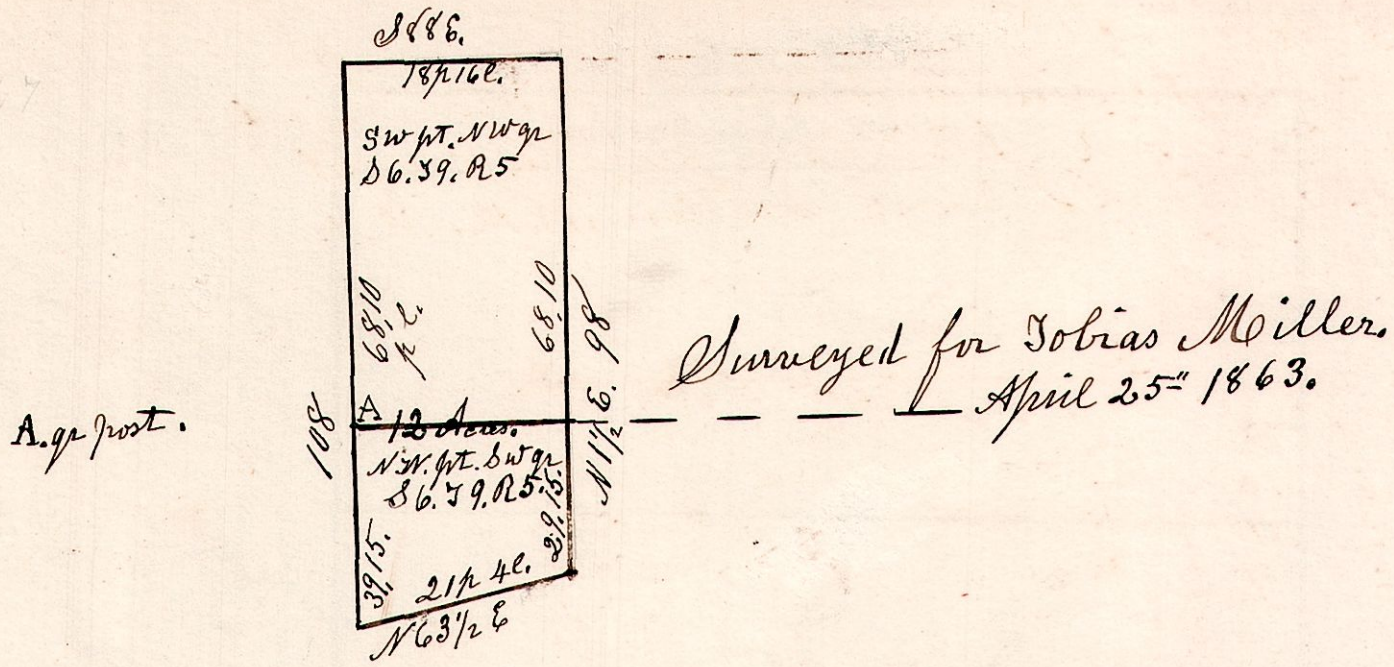 S88E.
18p 16l.
SW pt. NW qr
S6. T9. R5
68.10
p l.
68.10
N 1 1/2 E. 98
108
A
12 Acres.
N.W. pt. SW qr
S6. T9. R5.
39.15.
29.15.
21p 4l.
N 63 1/2 E
A. qr post.
Surveyed for Tobias Miller.
April 25" 1863.